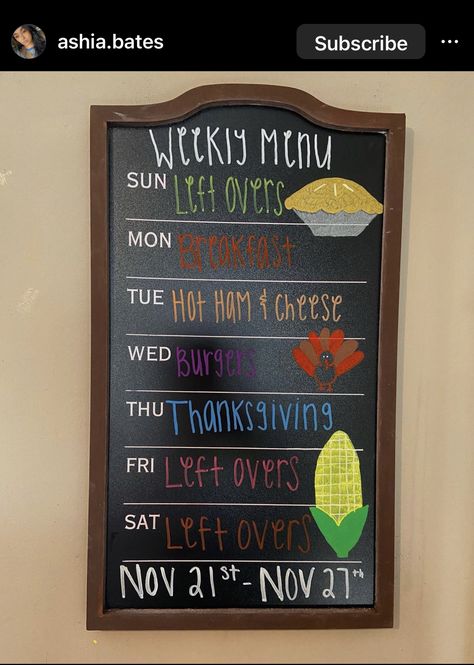 ashia.bates
Subscribe
WEEKlY MENU
SUN Left OVERS
MON Breakfast
TUE HOt HAM & CHEESE
WED BURGERS
THU THANKSGIVING
FRI LEFt OVERS
SAT LEFt OVERS
NOV 21st - NOV 27th